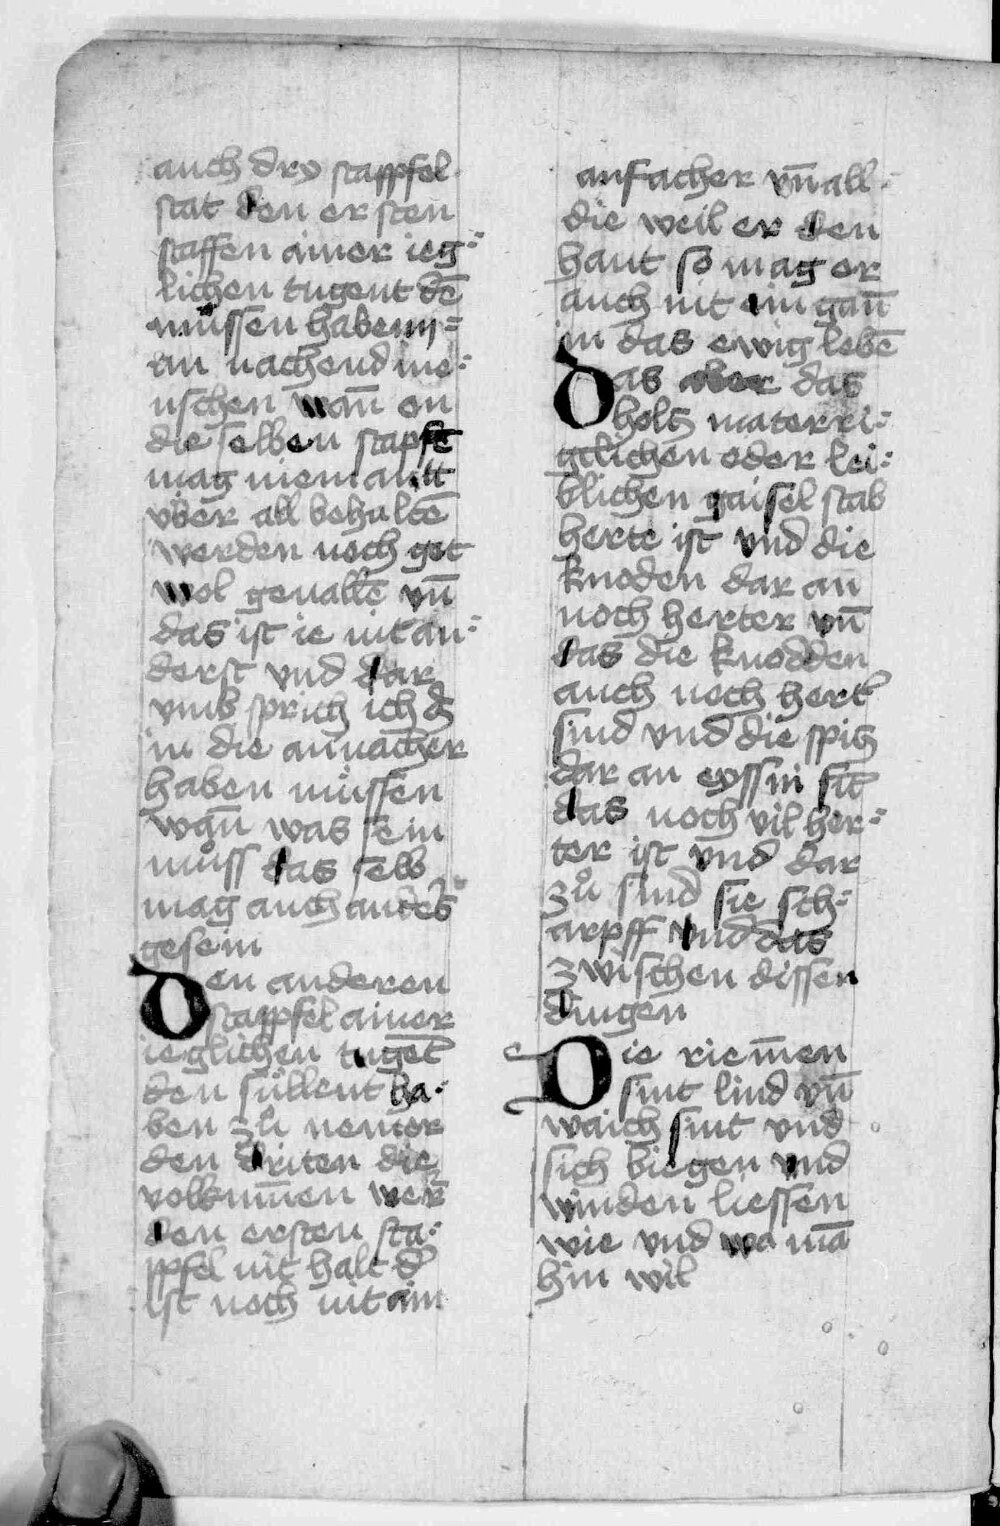 auch dry stappfel
stat den ersten
staffen ainer ieg⸗
lichen tugent dē
müssen haben
an nachend me⸗
nschen wañ on
die selben stapfē
mag niemantt
vber all behaltē
werden noch got
wol geuallē vñ
das ist ie nit an⸗
derst vnd dar
vmb sprich ich
in die anuacher
haben müssen
wañ was sein
můss das selb
mag auch anders
gesein
Den anderen
stappfel ainer
ieglichen tugēt
den süllent ha⸗
ben zů nemer
den driten die
volkum̄en wer
den ersten sta⸗
ppfel nit halt
ist noch nit ain
anfacher vñ all⸗
die weil er den
hant so mag er
auch nit ein gañ
in das ewig lebē
Das aber das
holtz materi⸗
gclichen oder lei⸗
blichen gaisel stab
herte ist vnd die
knoden dar an
noch herter vñ
das die knodden
auch noch hert
sind vnd die spitz
dar an eyssin sīt
das noch vil her⸗
ter ist vnd dar
zů sind sie sch⸗
arpff vnd das
zwischen dissen
dingen
Die riem̄en
sint lind vñ
waich sint vnd
sich biegen vnd
winden liessen
wie vnd wa mā
hin wil